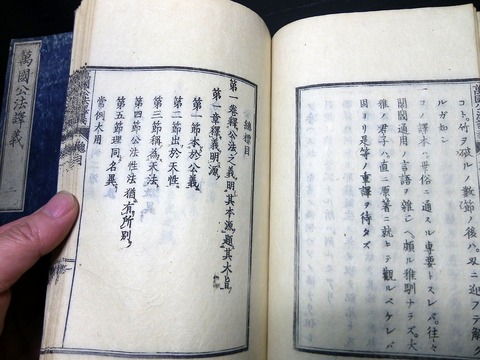 コト。竹ヲ破ルノ數節ノ後ハ。刃ニ迎フテ解ク
ルガ如シ
一 ノ譯本ハ世俗ニ通スルヲ専要トスレバ。往々
閭閻通用ノ言語ヲ雜ヘ。頗ル雅馴ナラズ。大
雅ノ君子ハ直ニ原著ニ就キテ觀ルベケレバ
因ヨリ是等ノ重譯ヲ待タズ
總標目
第一卷釋公法之義明其本源題其大旨
第一章釋義明源
第一節本於公義
第二節出於天性
第三節稱為天法
第四節公法性法猶有所別
第五節理同名異
常例大用
萬國公法譯義